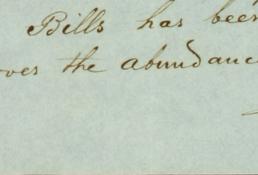 Bills has been
over the abundanc